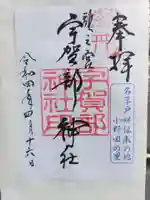 奉拝
名草戸畔伝承の地
小野田の里
頭之宮
宇賀部神社
宇賀部
神社印
令和四年四月十六日